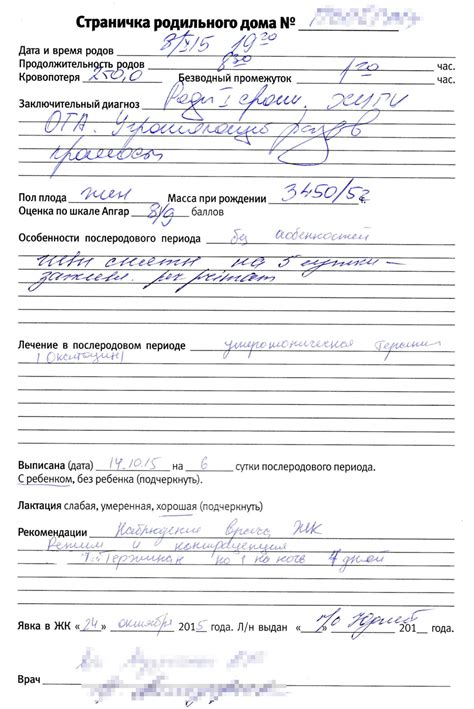 Страничка родильного дома №
Дата и время родов 8/X 15 19 20
Продолжительность родов 8 30 час.
Кровопотеря 250,0 Безводный промежуток 1 20 час.
Заключительный диагноз Роды I срочн.
ОАА. Угрожающий разрыв
промежности
Пол плода жен Масса при рождении 3450/52 г.
Оценка по шкале Апгар 8/9 баллов
Особенности послеродового периода без особенностей
Швы сняты на 5 сутки –
заживл. per primam
Лечение в послеродовом периоде утеротоническая терапия
(окситоцин)
Выписана (дата) 14.10.15 на 6 сутки послеродового периода.
С ребенком, без ребенка (подчеркнуть).
Лактация слабая, умеренная, хорошая (подчеркнуть)
Рекомендации Наблюдение врача ЖК
Режим и контрацепция
Тержинан по 1 на ночь 7 дней
Явка в ЖК «24» октября 2015 года. Л/н выдан « » 201 года.
Врач